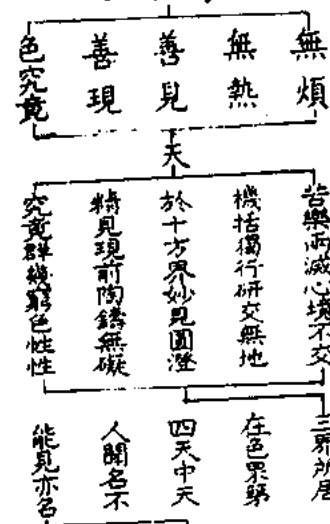 無煩
無熱
善見
善現
色究竟
天
苦樂兩滅心境不交
機括獨行研交無地
於十方界妙見圓澄
精見現前陶鑄無礙
究竟群幾窮色性性
三界所居
在色界窮
四天中天
人聞名不
能見亦名